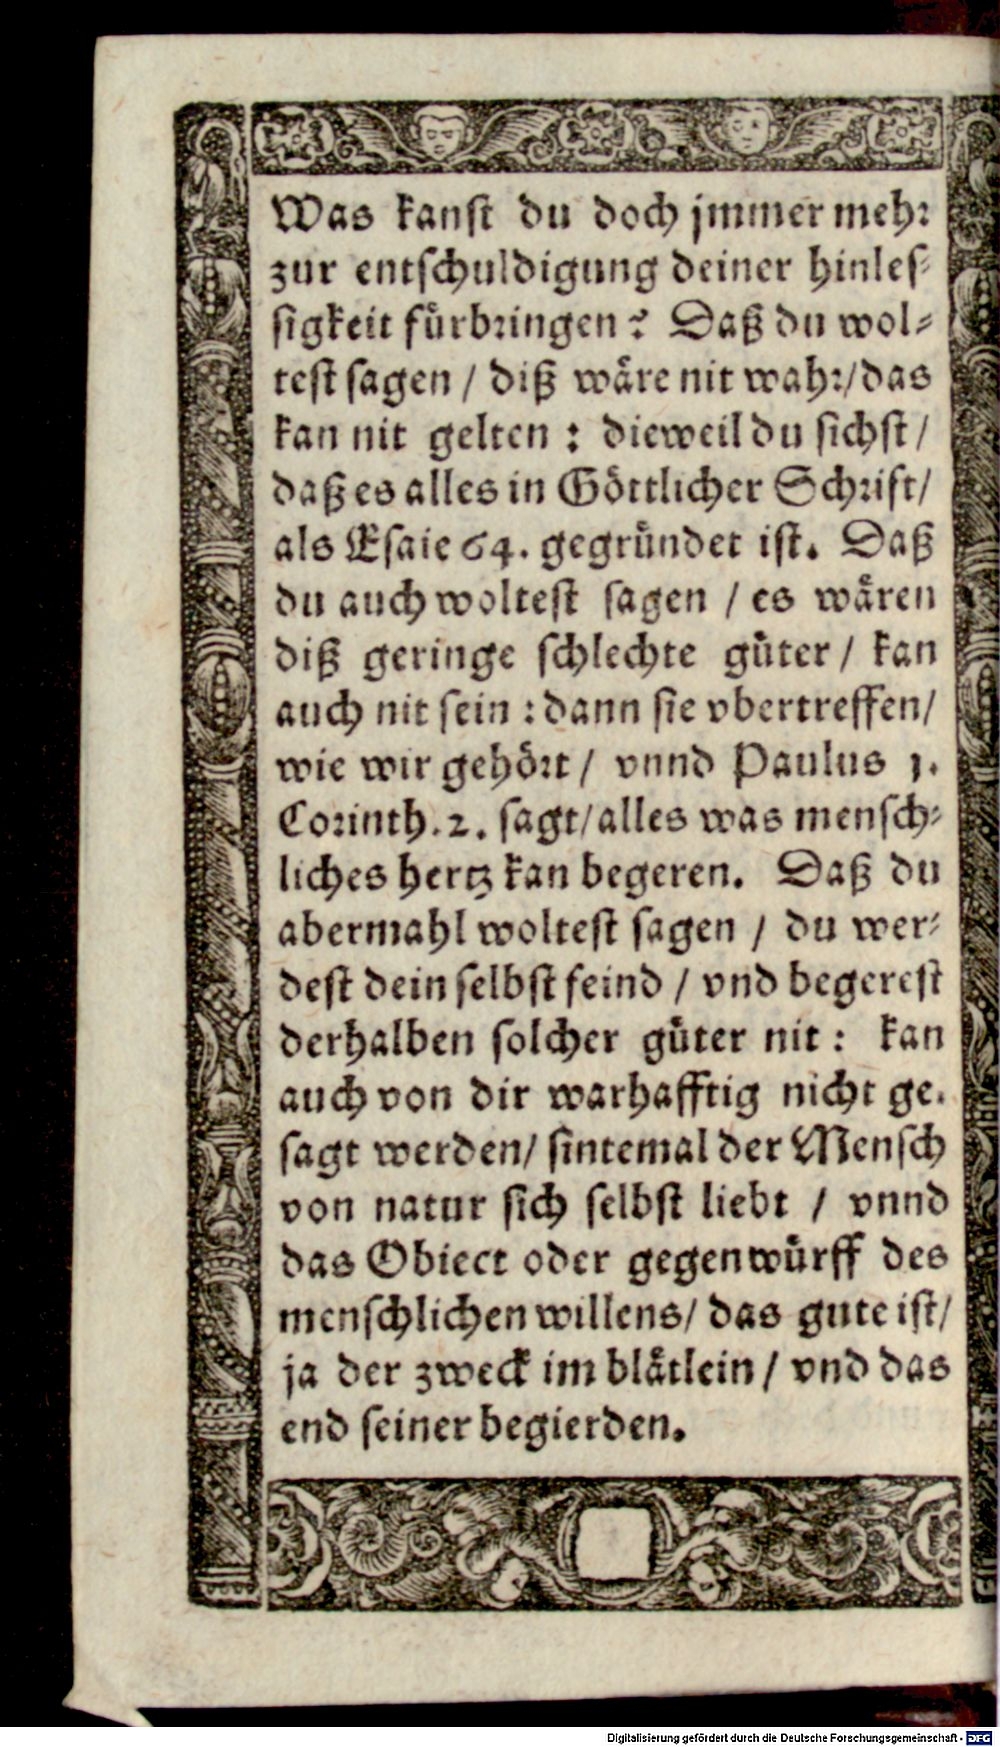 Was kanst du doch jmmer mehr
zur entschuldigung deiner hinles-
sigkeit fürbringen? Daß du wol-
test sagen / diß wäre nit wahr/das
kan nit gelten : dieweil du sichst /
daß es alles in Göttlicher Schrift/
als Esaie 64. gegründet ist. Daß
du auch woltest sagen / es wären
diß geringe schlechte güter / kan
auch nit sein : dann sie vbertreffen/
wie wir gehört / vnnd Paulus 1.
Corinth. 2. sagt/alles was mensch-
liches hertz kan begeren. Daß du
abermahl woltest sagen / du wer-
dest dein selbst feind / vnd begerest
derhalben solcher güter nit : kan
auch von dir warhafftig nicht ge.
sagt werden/ sintemal der Mensch
von natur sich selbst liebt / vnnd
das Obiect oder gegenwürff des
menschlichen willens/ das gute ist/
ja der zweck im blätlein / vnd das
end seiner begierden.
Digitalisierung gefördert durch die Deutsche Forschungsgemeinschaft - DFG